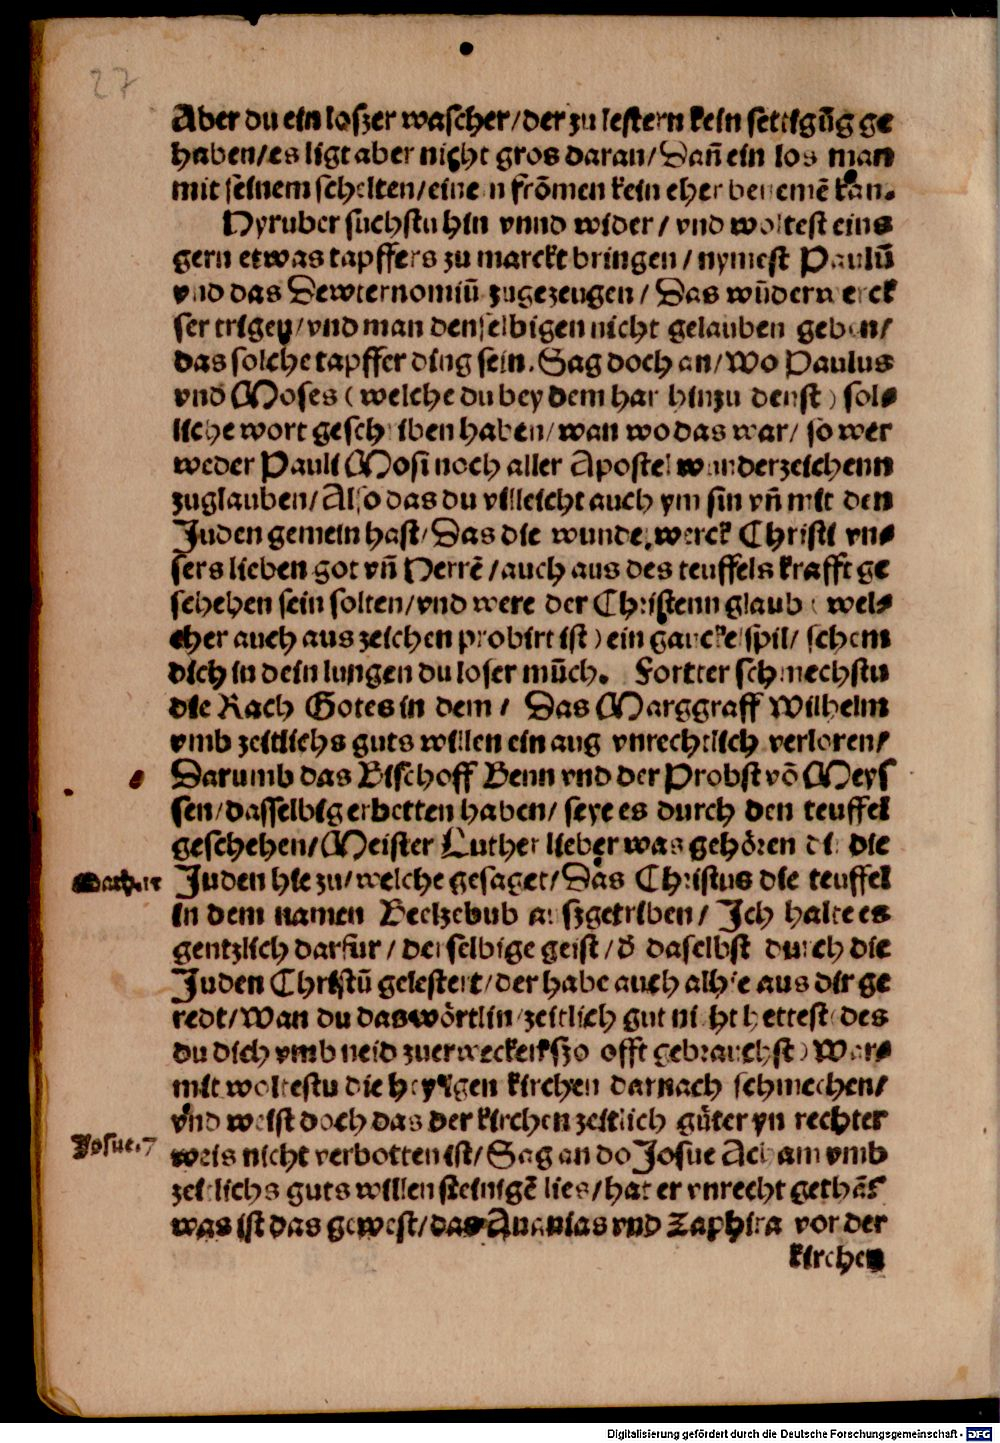 27
Aber du ein loszer wascher/der zu lestern kein settigūg ge
haben/es ligt aber nicht gros daran/Dañ ein los man
mit seinem schelten/einen frõmen kein eher benemē kan.
Hyruber suchstu hin vnnd wider/vnd woltest eins
gern etwas tapffers zu marckt bringen/nymest Paulū
vnd das Dewternomiū zugezeugen/Das wūderwerck
ser trigen/vnd man denselbigen nicht gelauben geben/
das solche tapffer ding sein. Sag doch an/Wo Paulus
vnd Moses (welche du bey dem har hinzu denst) sol⸗
liche wort geschriben haben/wan wo das war/so wer
weder Pauli Mosi noch aller Apostel wunderzeichenn
zuglauben/Also das du villeicht auch ym sin vñ mit den
Juden gemein hast/Das die wunderwerck Christi vn⸗
sers lieben got vñ Herrē/auch aus des teuffels krafft ge
schehen sein solten/vnd were der Christenn glaub (wel⸗
cher auch aus zeichen probirt ist) ein gauckelspil/schem
dich in dein lungen du loser mūch. Fortter schmechstu
die Rach Gotes in dem/Das Marggraff Wilhelm
vmb zeitlichs guts willen ein aug vnrechtlich verloren/
Darumb das Bischoff Benn vnd der Probst võ Meys
sen/dasselbig erbetten haben/seye es durch den teuffel
geschehen/Meister Luther lieber was gehören dir die
Math.12
Juden hie zu/welche gesaget/Das Christus die teuffel
in dem namen Beelzebub auszgetriben/Ich halte es
gentzlich darfur/derselbige geist/ð daselbst durch die
Juden Christū gelestert/der habe auch alhie aus dir ge
redt/Wan du das wörtlin/zeitlich gut nicht hettest (des
du dich vmb neid zuerwecken szo offt gebrauchst) War⸗
mit woltestu die heyligen kirchen darnach schmechen/
vnd weist doch das der kirchen zeitlich güter yn rechter
Josue.7
weis nicht verbotten ist/Sag an do Josue Acham vmb
zeitlichs guts willen steinigē lies/hat er vnrecht gethā?
was ist das gewest/das Ananias vnd Zaphira vor der
kirchen
Digitalisierung gefördert durch die Deutsche Forschungsgemeinschaft - DFG